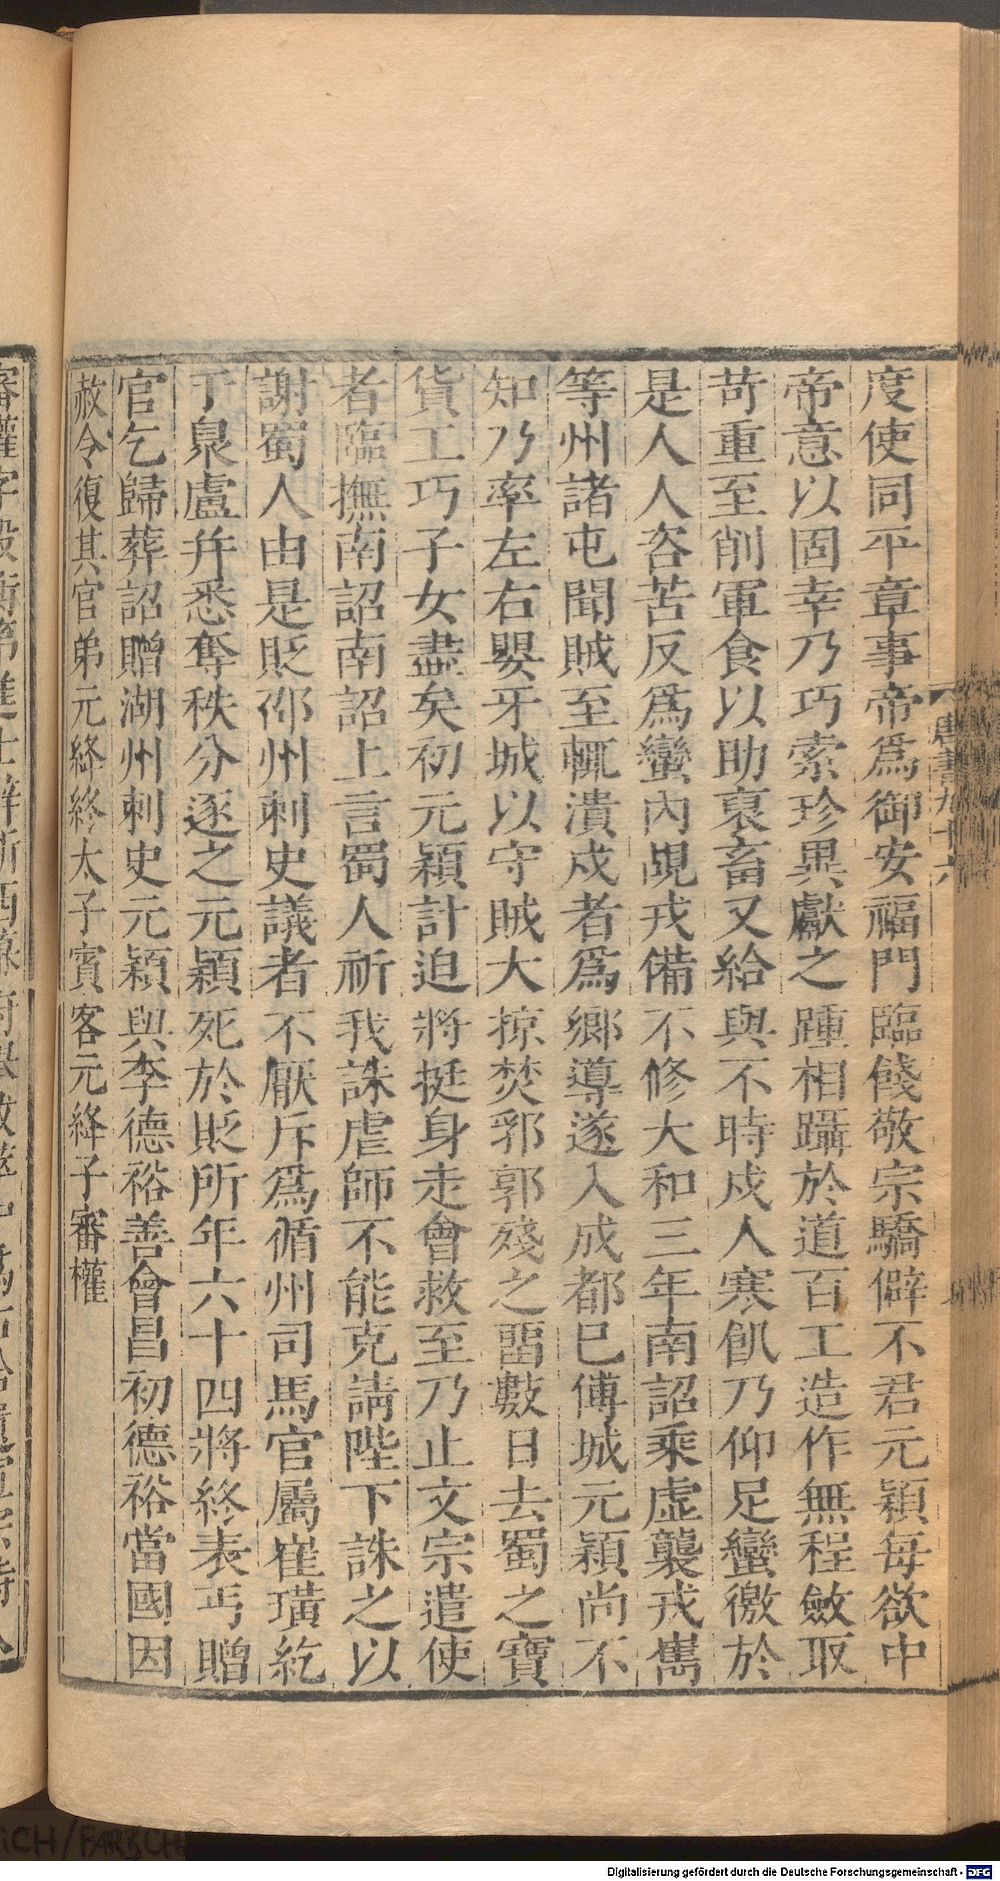 度使同平章事帝爲御安福門臨餞敬宗驕僻不君元穎每欲中
帝意以固幸乃巧索珍異獻之踵相躡於道百工造作無程斂取
苛重至削軍食以助裒畜又給與不時戍人寒飢乃仰足蠻徼於
是人人咨苦反爲蠻內覘戎備不修大和三年南詔乘虛襲戎巂
等州諸屯聞賊至輒潰戍者爲鄉導遂入成都已傅城元穎尚不
知乃率左右嬰牙城以守賊大掠焚郛郭殘之畱數日去蜀之寶
貨工巧子女盡矣初元穎計迫將挺身走會救至乃止文宗遣使
者臨撫南詔南詔上言蜀人祈我誅虐帥不能克請陛下誅之以
謝蜀人由是貶邵州刺史議者不厭斥爲循州司馬官屬崔璜紇
干臮盧并悉奪秩分逐之元穎死於貶所年六十四將終表丐贈
官乞歸葬詔贈湖州刺史元穎與李德裕善會昌初德裕當國因
赦令復其官弟元絳終太子賓客元絳子審權
唐書九十六
Digitalisierung gefördert durch die Deutsche Forschungsgemeinschaft - DFG